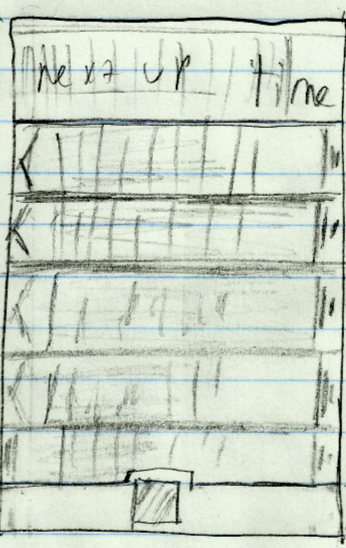 Next up time